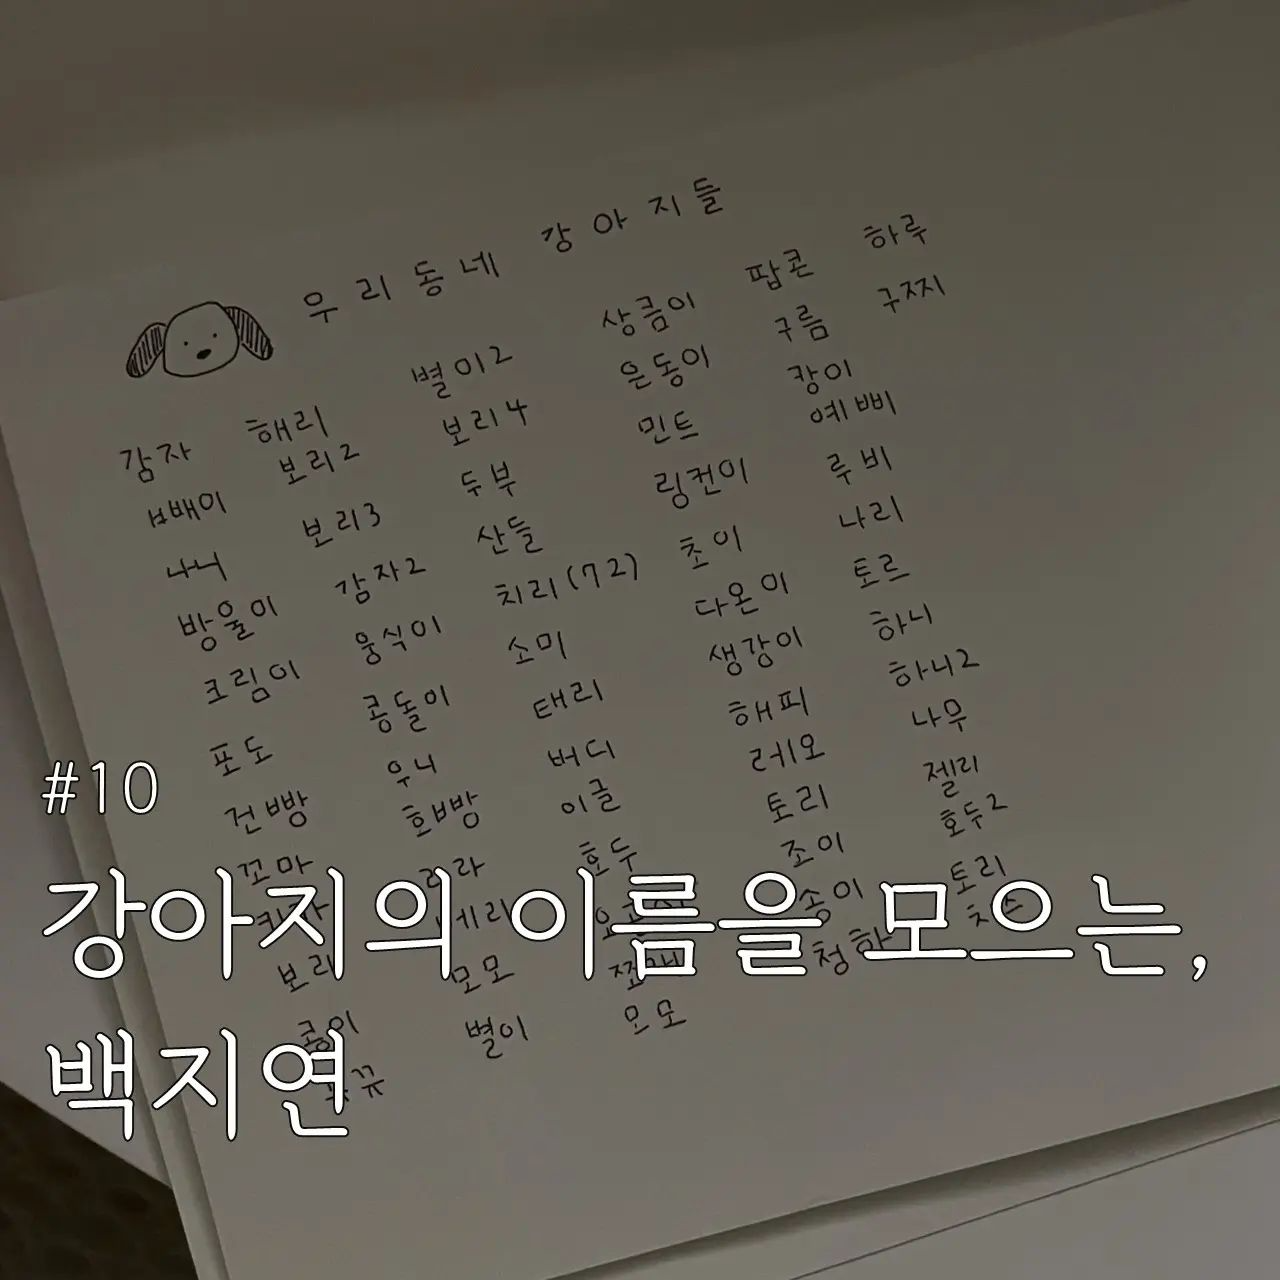 우리동네 강아지들
감자
ㅂ배이
나니
방울이
크림이
포도
건빵
꼬마
보리
콩이
해리
보리2
보리3
감자2
웅식이
콩돌이
우니
호빵
모모
별이
별이2
보리4
두부
산들
치리(72)
소미
태리
버디
이글
호두
모모
상큼이
은동이
민트
링컨이
초이
다온이
생강이
해피
레오
토리
조이
송이
청하
팝콘
구름
캉이
예삐
루비
나리
토르
하니
하니2
나무
젤리
호두2
토리
하루
구찌
#10
강아지의 이름을 모으는,
백지연